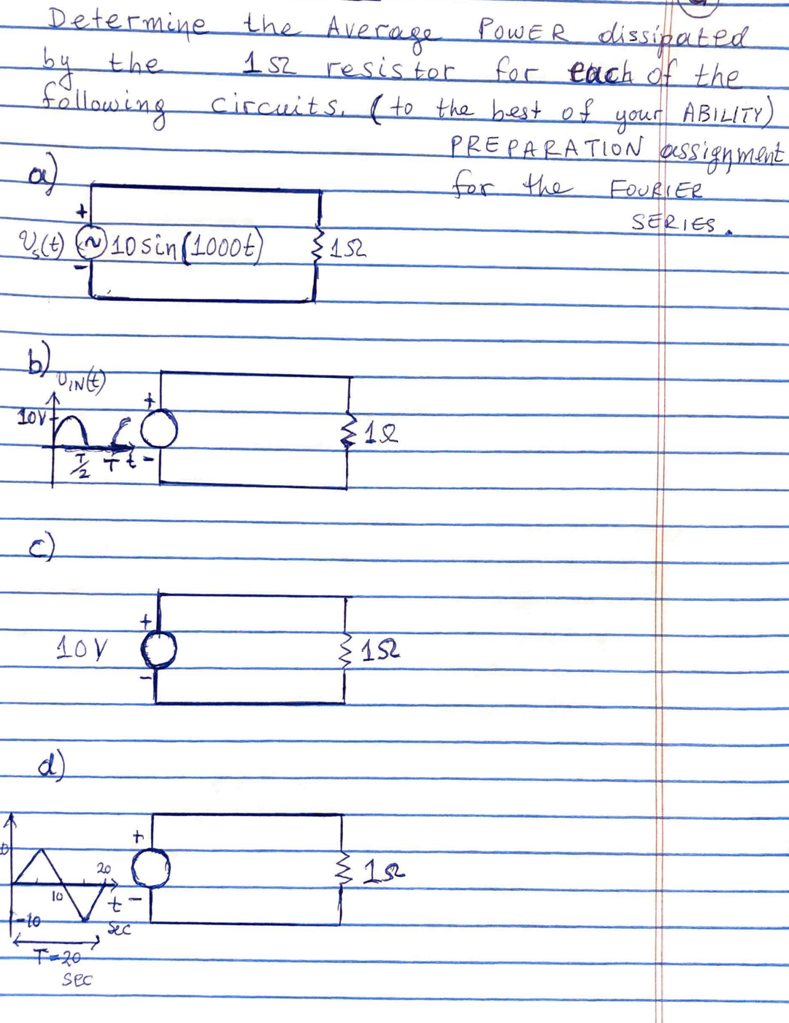 Determine the Average POWER dissipated
by the 1Ω resistor for each of the
following circuits. (to the best of your ABILITY)
PREPARATION assignment
for the FOURIER
SERIES.
a)
+
Vs(t) 10 sin(1000t) 1Ω
-
b)
VIN(t)
+
10V
1Ω
T/2 T t -
c)
+
10V 1Ω
-
d)
+
20
1Ω
10
t -
-10
sec
T=20
sec